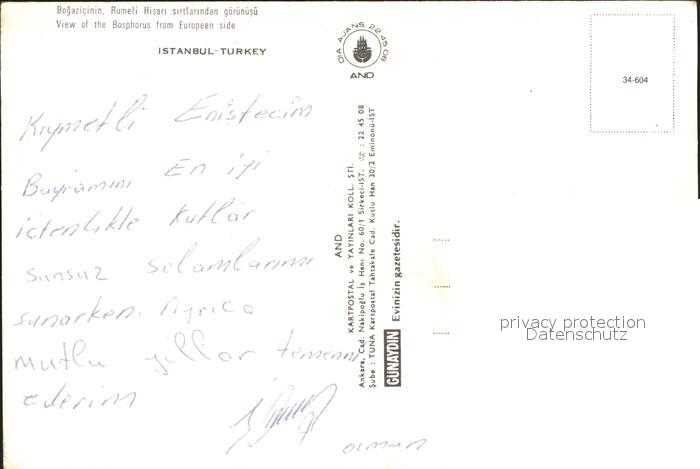 Boğaziçinin, Rumeli Hisarı sırtlarından görünüşü
View of the Bosphorus from Europeen side
ISTANBUL-TURKEY
Kıymetli Eniştecim
Bayramını En iyi
içtenlikle kutlar
sunsuz selamlarımı
sunarken. Ayrıca
mutlu yıllar temenni
ederim
osman
DIA AJANS 22 45 08
AND
AND
KARTPOSTAL ve YAYINLARI KOLL. ŞTİ.
Ankara, Cad. Nakipoğlu İş Hanı No. 60/1 Sirkeci-İST. : 22 45 08
Şube : TUNA Kartpostal Tahtakale Cad. Kutlu Han 30/2 Eminönü-İST
GÜNAYDIN Evinizin gazetesidir.
34-604
privacy protection
Datenschutz